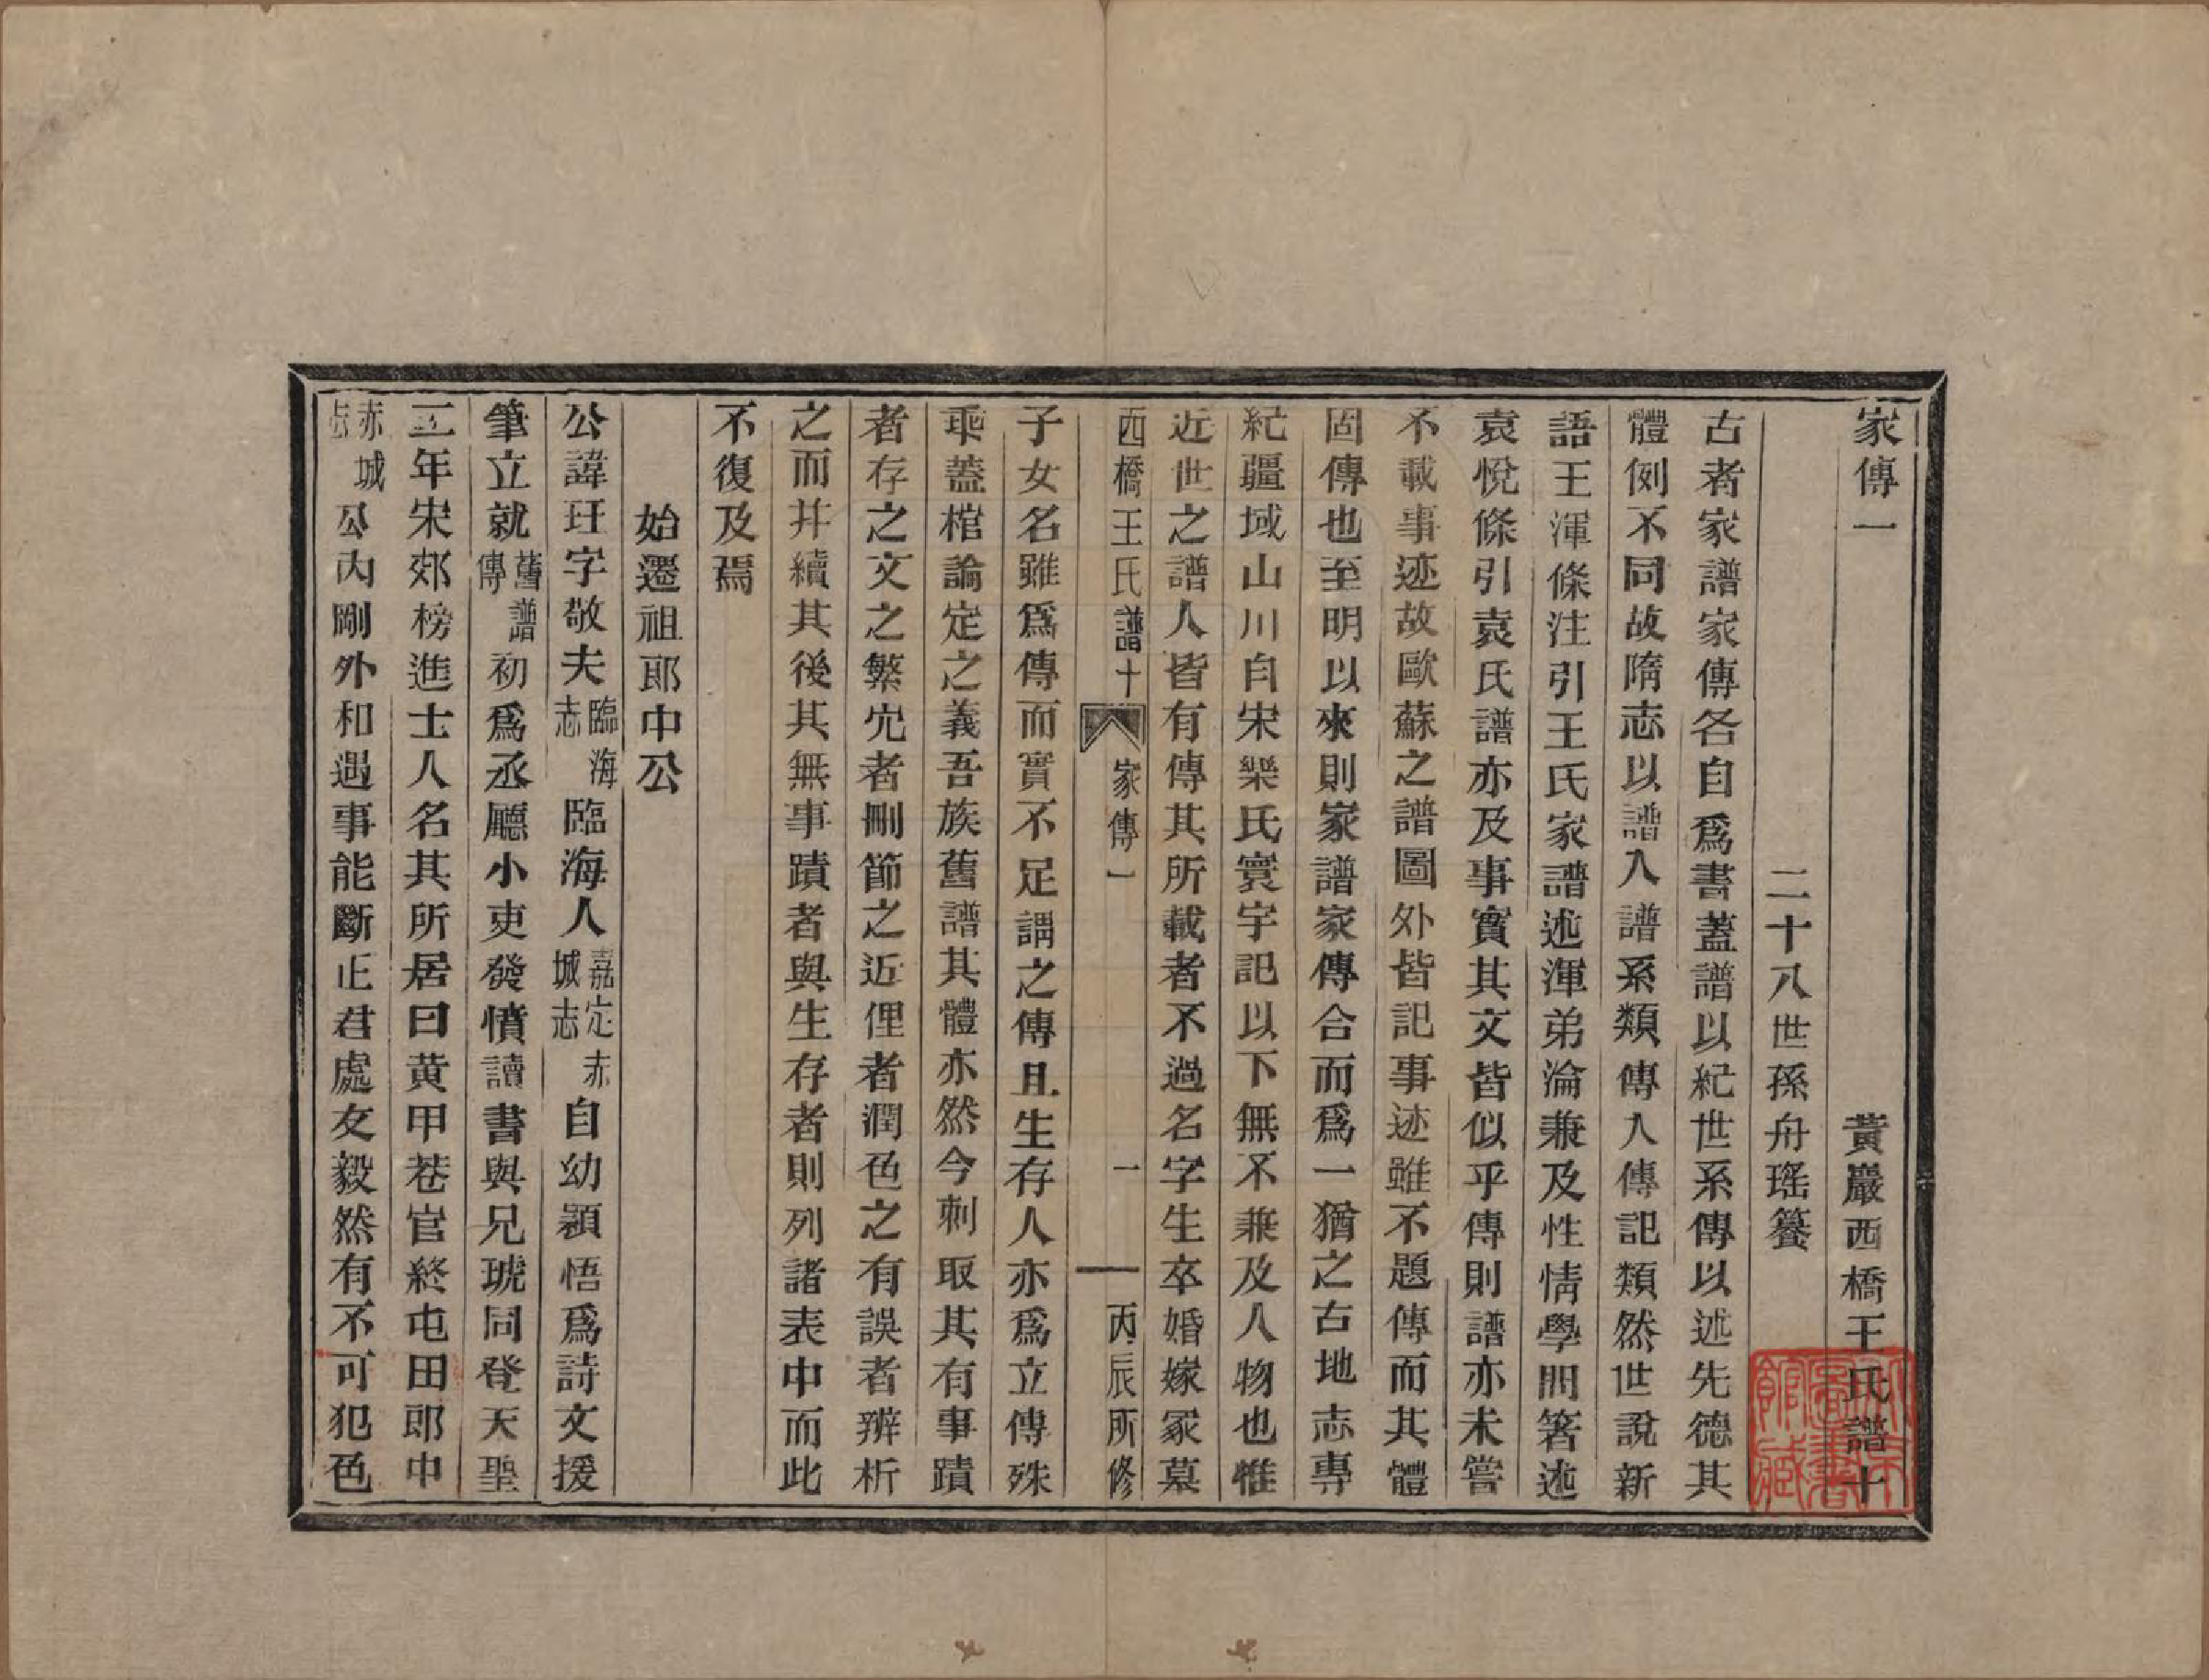 家傳一　黃巖西橋王氏譜十
二十八世孫舟瑤纂
古者家譜家傳各自爲書蓋譜以紀世系傳以述先德其
體例不同故隋志以譜入譜系類傳入傳記類然世說新
語王渾條注引王氏家譜述渾弟淪兼及性情學問箸述
袁悅條引袁氏譜亦及事實其文皆似乎傳則譜亦未嘗
不載事迹故歐蘇之譜圖外皆記事迹雖不題傳而其體
固傳也至明以來則家譜家傳合而爲一猶之古地志專
紀疆域山川自宋樂氏寰宇記以下無不兼及人物也惟
近世之譜人皆有傳其所載者不過名字生卒婚嫁冢墓
西橋王氏譜十　家傳一　一　丙辰所修
子女名雖爲傳而實不足謂之傳且生存人亦爲立傳殊
乖蓋棺論定之義吾族舊譜其體亦然今刺取其有事蹟
者存之文之繁宂者刪節之近俚者潤色之有誤者辨析
之而幷續其後其無事蹟者與生存者則列諸表中而此
不復及焉
始遷祖郎中公
公諱玨字敬夫臨海志臨海人嘉定赤城志自幼穎悟爲詩文援
筆立就舊譜傳初爲丞廳小吏發憤讀書與兄琥同登天聖
二年宋郊榜進士人名其所居曰黃甲巷官終屯田郎中
赤城志公內剛外和遇事能斷正君處友毅然有不可犯色